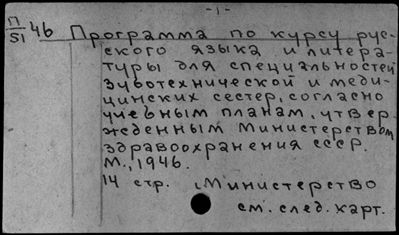 -1-
П/51 46 Программа по курсу рус-
ского языка и литера-
туры для специальностей
зуботехнической и меди-
цинских сестер, согласно
учебным планам, утвер
жденным Министерством
здравоохранения СССР.
М., 1946.
14 стр. Министерство
см. след. карт.